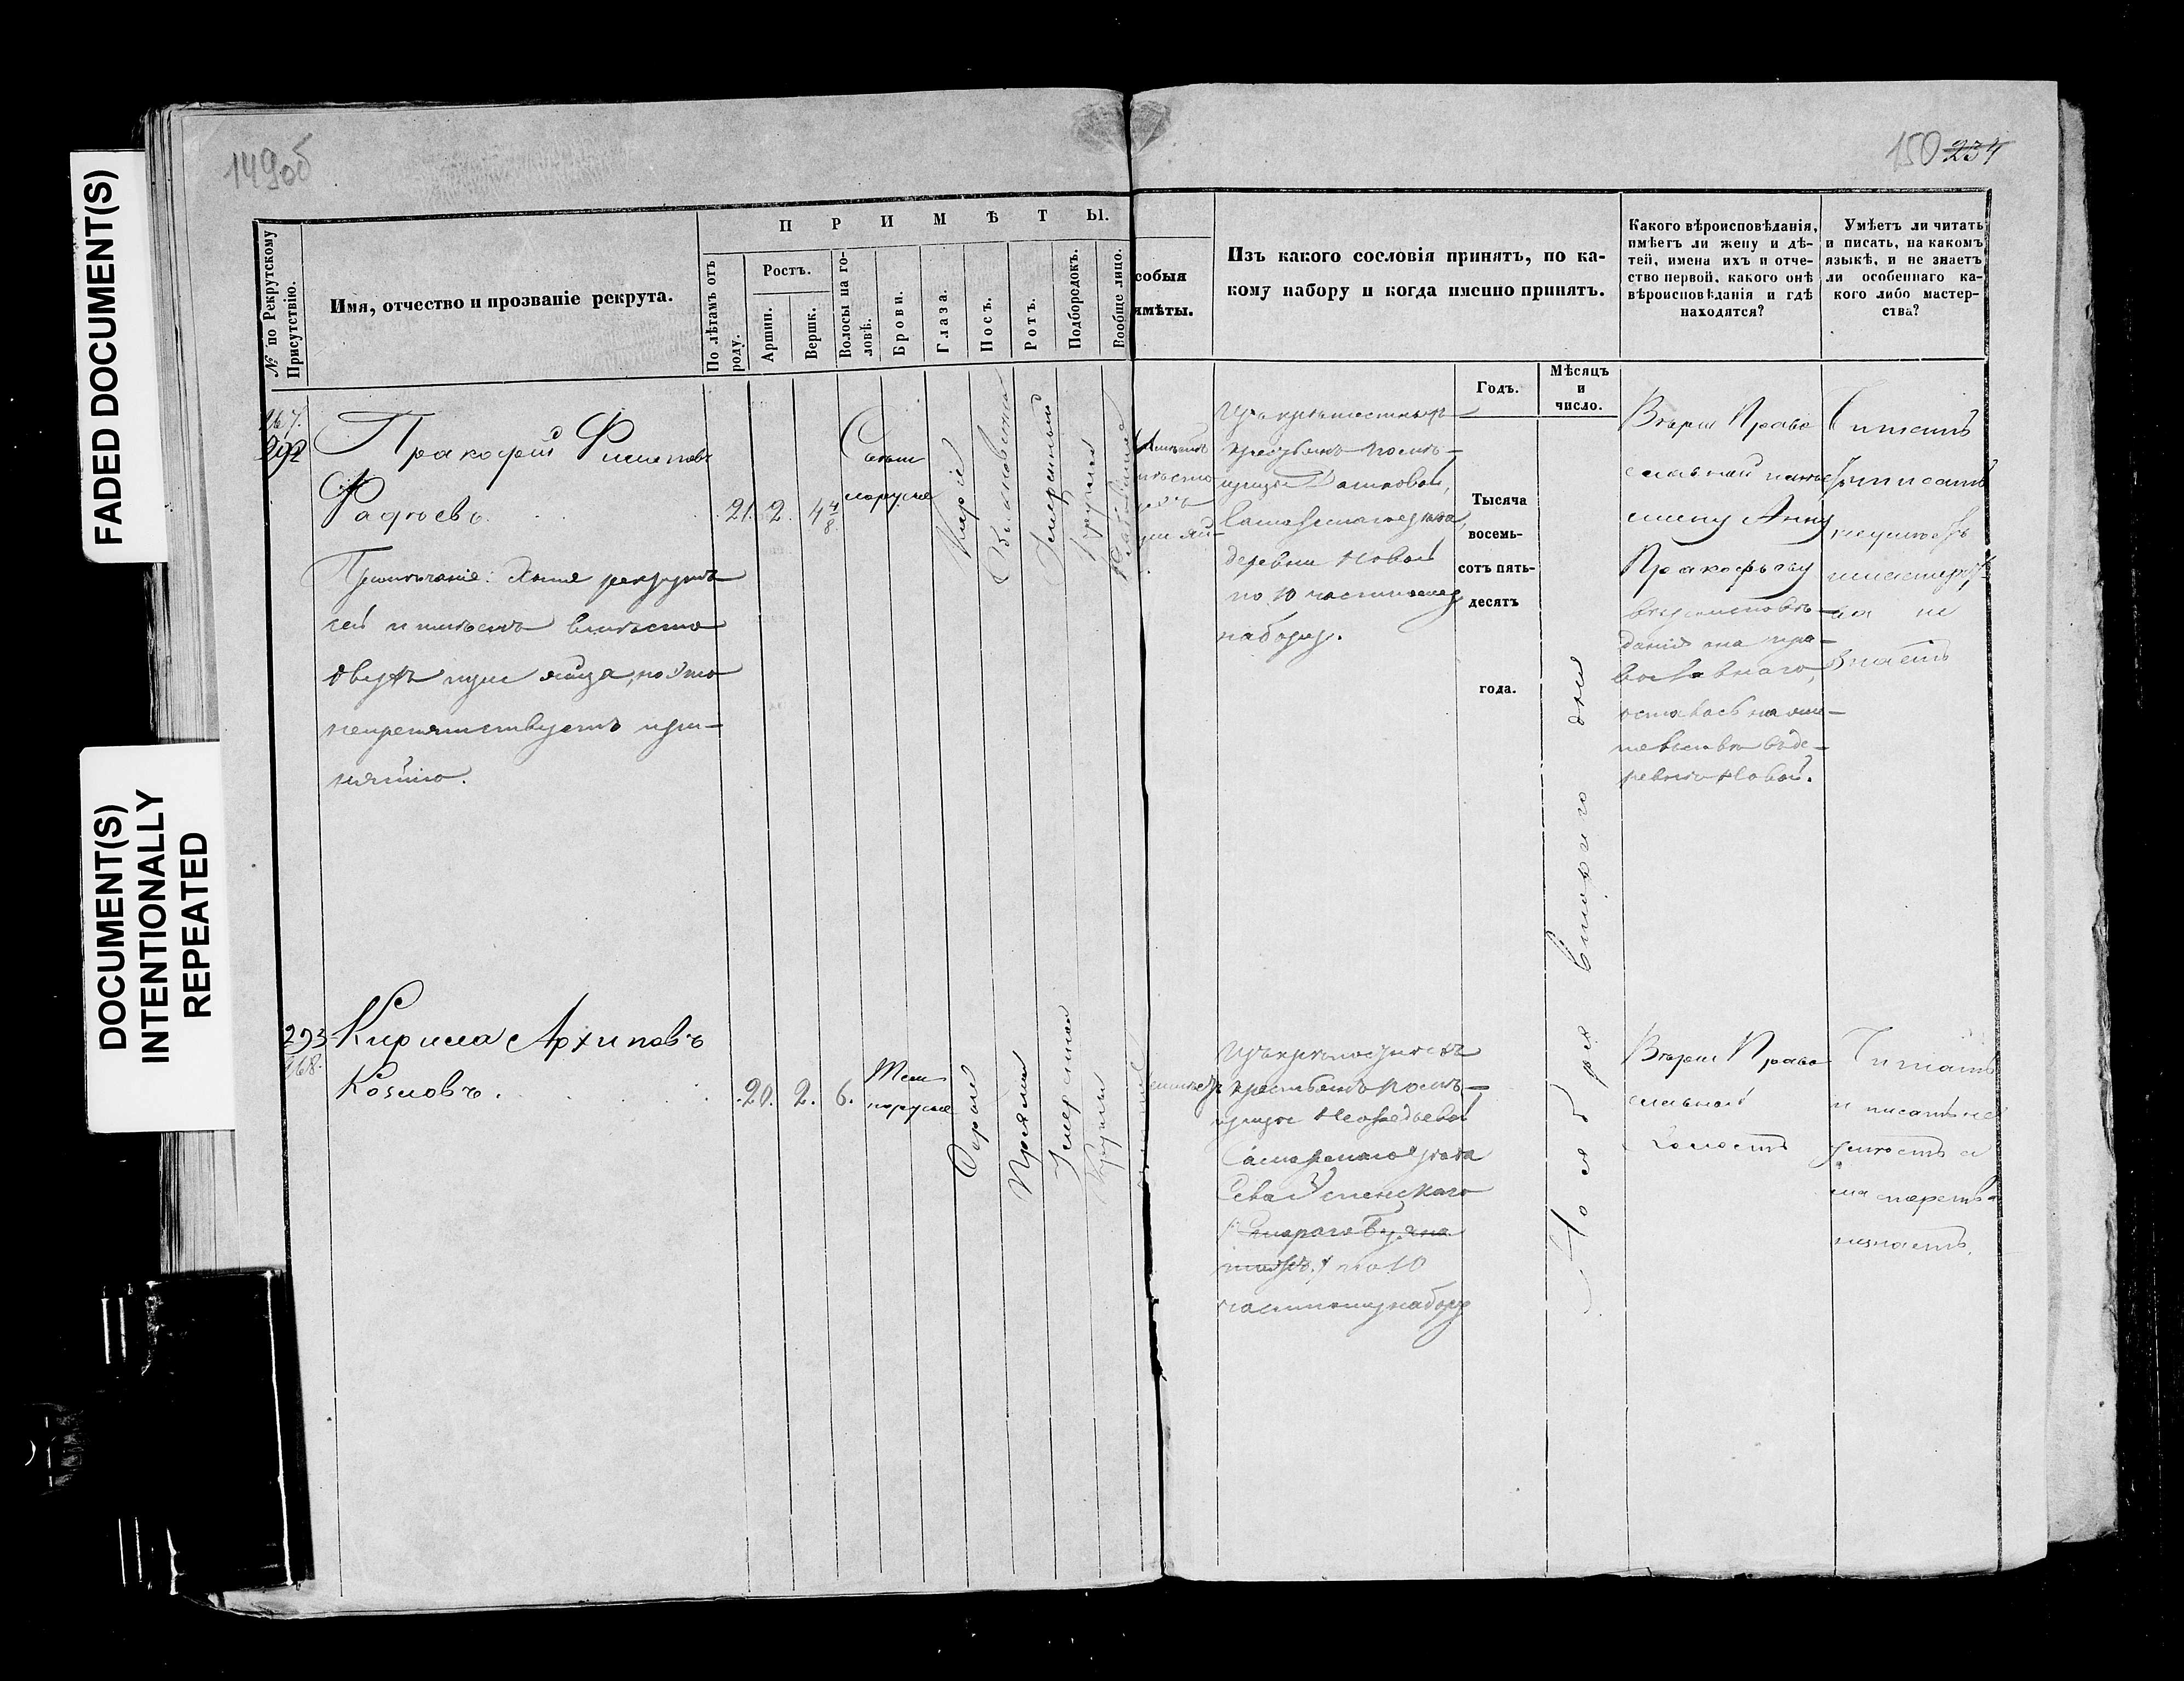 FADED DOCUMENT(S)
DOCUMENT(S)
INTENTIONALLY
REPEATED
149об
150 234
№ по Рекрутскому
Присутствію.
Имя, отчество и прозваніе рекрута.
ПРИМѢТЫ.
По лѣтамъ отъ
роду.
Ростъ.
Аршин.
Вершк.
Волосы на го-
ловѣ.
Брови.
Глаза.
Носъ.
Ротъ.
Подбородокъ.
Вообще лицо.
собыя
имѣты.
Изъ какого сословія принятъ, по ка-
кому набору и когда именно принятъ.
Годъ.
Мѣсяцъ
и
число.
Какого вѣроисповѣданія,
имѣетъ ли жену и дѣ-
тей, имена ихъ и отче-
ство первой, какого онѣ
вѣроисповѣданія и гдѣ
находятся?
Умѣетъ ли читать
и писать, на какомъ
языкѣ, и не знаетъ
ли особеннаго ка-
кого либо мастер-
ства?
167.
292
Пракофій Филиповъ
Фадѣевъ.
21. 2. 4 4/8.
Свѣтло
русые
Каріе
Умеренный
Круглый
Примѣчаніе: Хотя рекрутъ
сей и имѣетъ вмѣсто
двухъ одно яйцо, но это
непрепятствуетъ при-
нятію.
крестьянъ помѣ-
щицы
Самарскаго уѣзда,
деревни Новой
по 10 частному
набору.
Тысяча
восемь-
сотъ пять-
десятъ
года.
Ноября втораго дня
Вѣры Право
славной имѣетъ
жену Анну
Пракофьеву
вѣроисповѣ-
данія она пра-
вославнаго,
осталась на
въ де-
ревнѣ Новой.
Читать
и писать
неумѣетъ
мастерст-
ва не
знаетъ
293
168.
Кирила Архиповъ
Козловъ.
20. 2. 6.
Темно
русые
Серые
Прямой
Умеренный
Круглый
крестьянъ помѣ-
щицы
Самарскаго уѣзда
Села Успенскаго
по 10
частному набору
Вѣры Право
славной
Холостъ
Читать
и писать не
умѣетъ и
мастерства
незнаетъ.